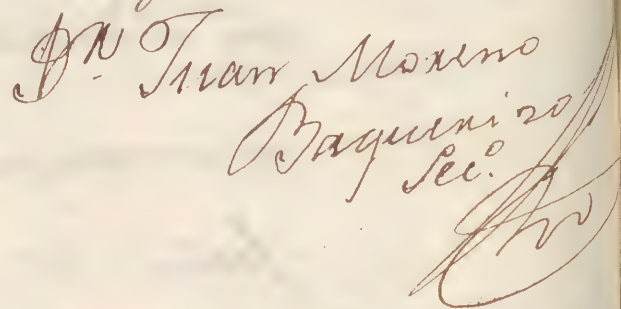 Dn. Juan Moreno
Baquerizo
Secº.